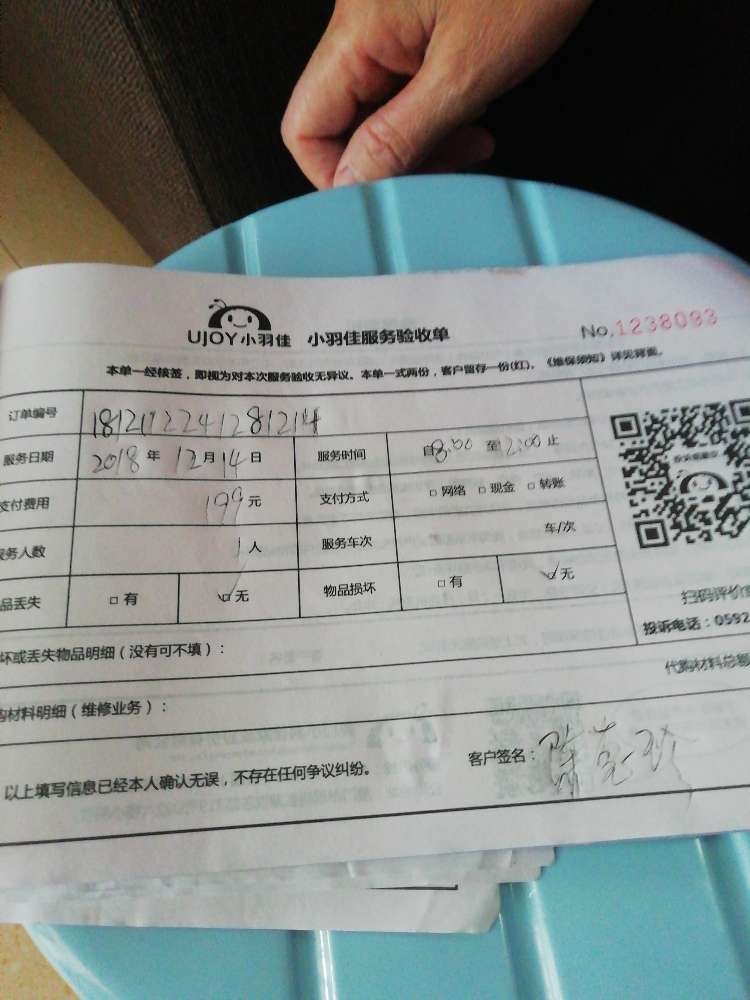 UJOY小羽佳 小羽佳服务验收单
No.1238093
本单一经核签，即视为对本次服务验收无异议。本单一式两份，客户留存一份(红)。《维保须知》详见背面。
订单编号 1812172241281214
服务日期 2018年12月14日 服务时间 自8:00 至12:00止
支付费用 199元 支付方式 □网络 □现金 □转账
务人数 1人 服务车次 车/次
品丢失 □有 ☑无 物品损坏 □有 ☑无
扫码评价
投诉电话：0592
坏或丢失物品明细（没有可不填）：
代购材料总
购材料明细（维修业务）：
以上填写信息已经本人确认无误，不存在任何争议纠纷。
客户签名：